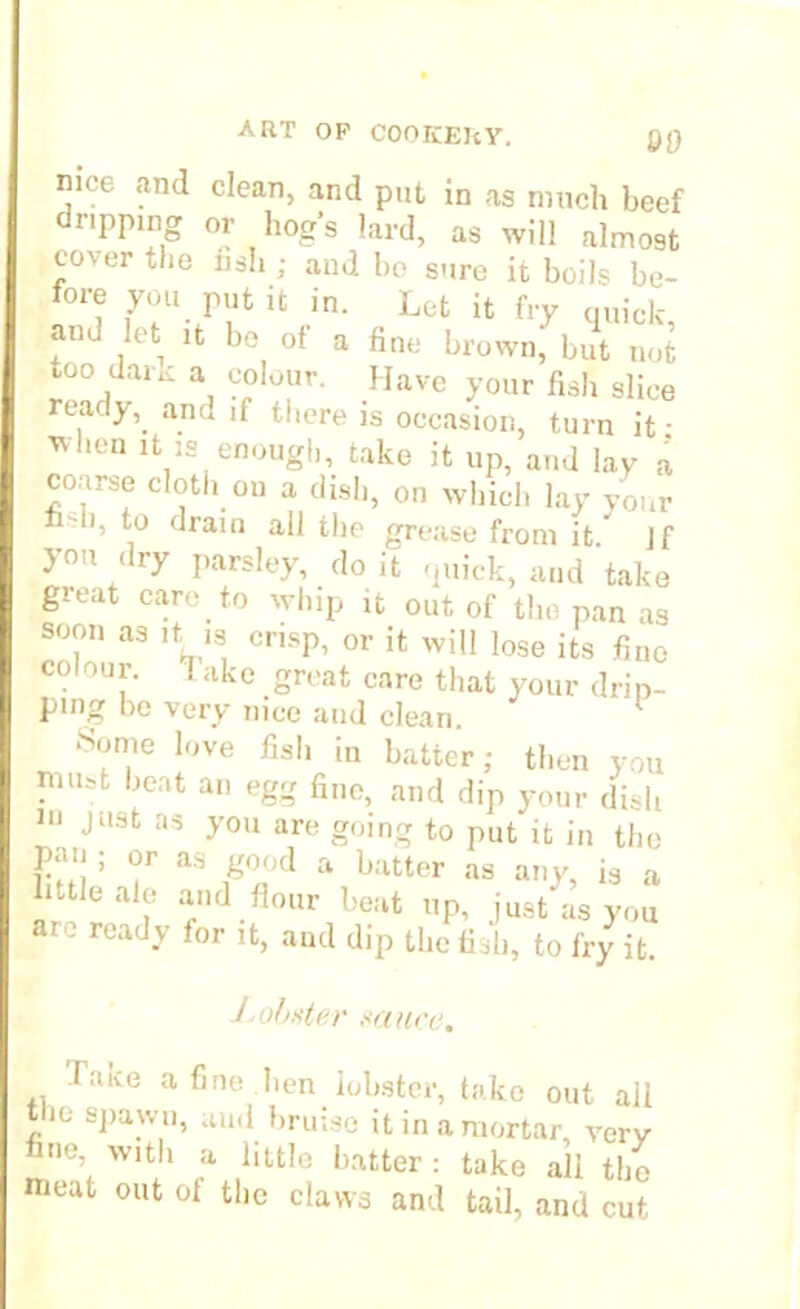 ART OF COOKERY. 99
nice and clean, and put in as much beef
dripping or hog's lard, as will almost
cover the fish ; and be sure it boils be-
fore you put it in. Let it fry quick,
and let it be of a fine brown, but not
too dark a colour. Have your fish slice
ready, and if there is occasion, turn it :
when it is enough, take it up, and lay a
coarse cloth on a dish, on which lay your
fish, to drain all the grease from it. If
you dry parsley, do it quick, and take
great care to whip it out of the pan as
soon as it is crisp, or it will lose its fine
colour. Take great care that your drip-
ping be very nice and clean.
Some love fish in batter ; then you
must beat an egg fine, and dip your dish
in just as you are going to put it in the
pan ; or as good a batter as any, is a
little ale and flour beat up, just as you
are ready for it, and dip the fish, to fry it.
Lobster sauce.
Take a fine hen lobster, take out all
the spawn, and bruise it in a mortar, very
fine, with a little batter : take all the
meat out of the claws and tail, and cut